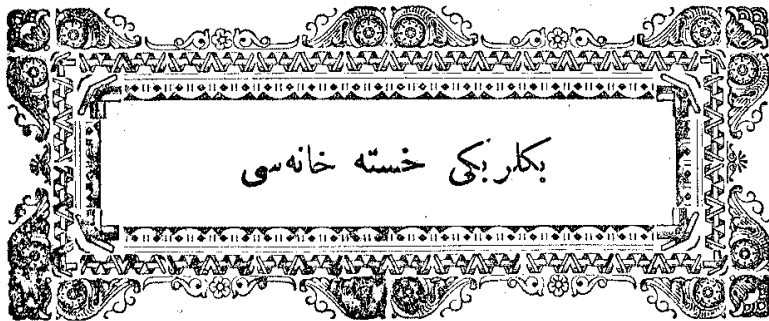 بكلربكی خسته خانه‌سی